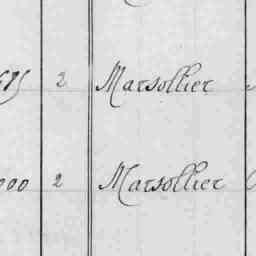 2 Marsollier
000 2 Marsollier